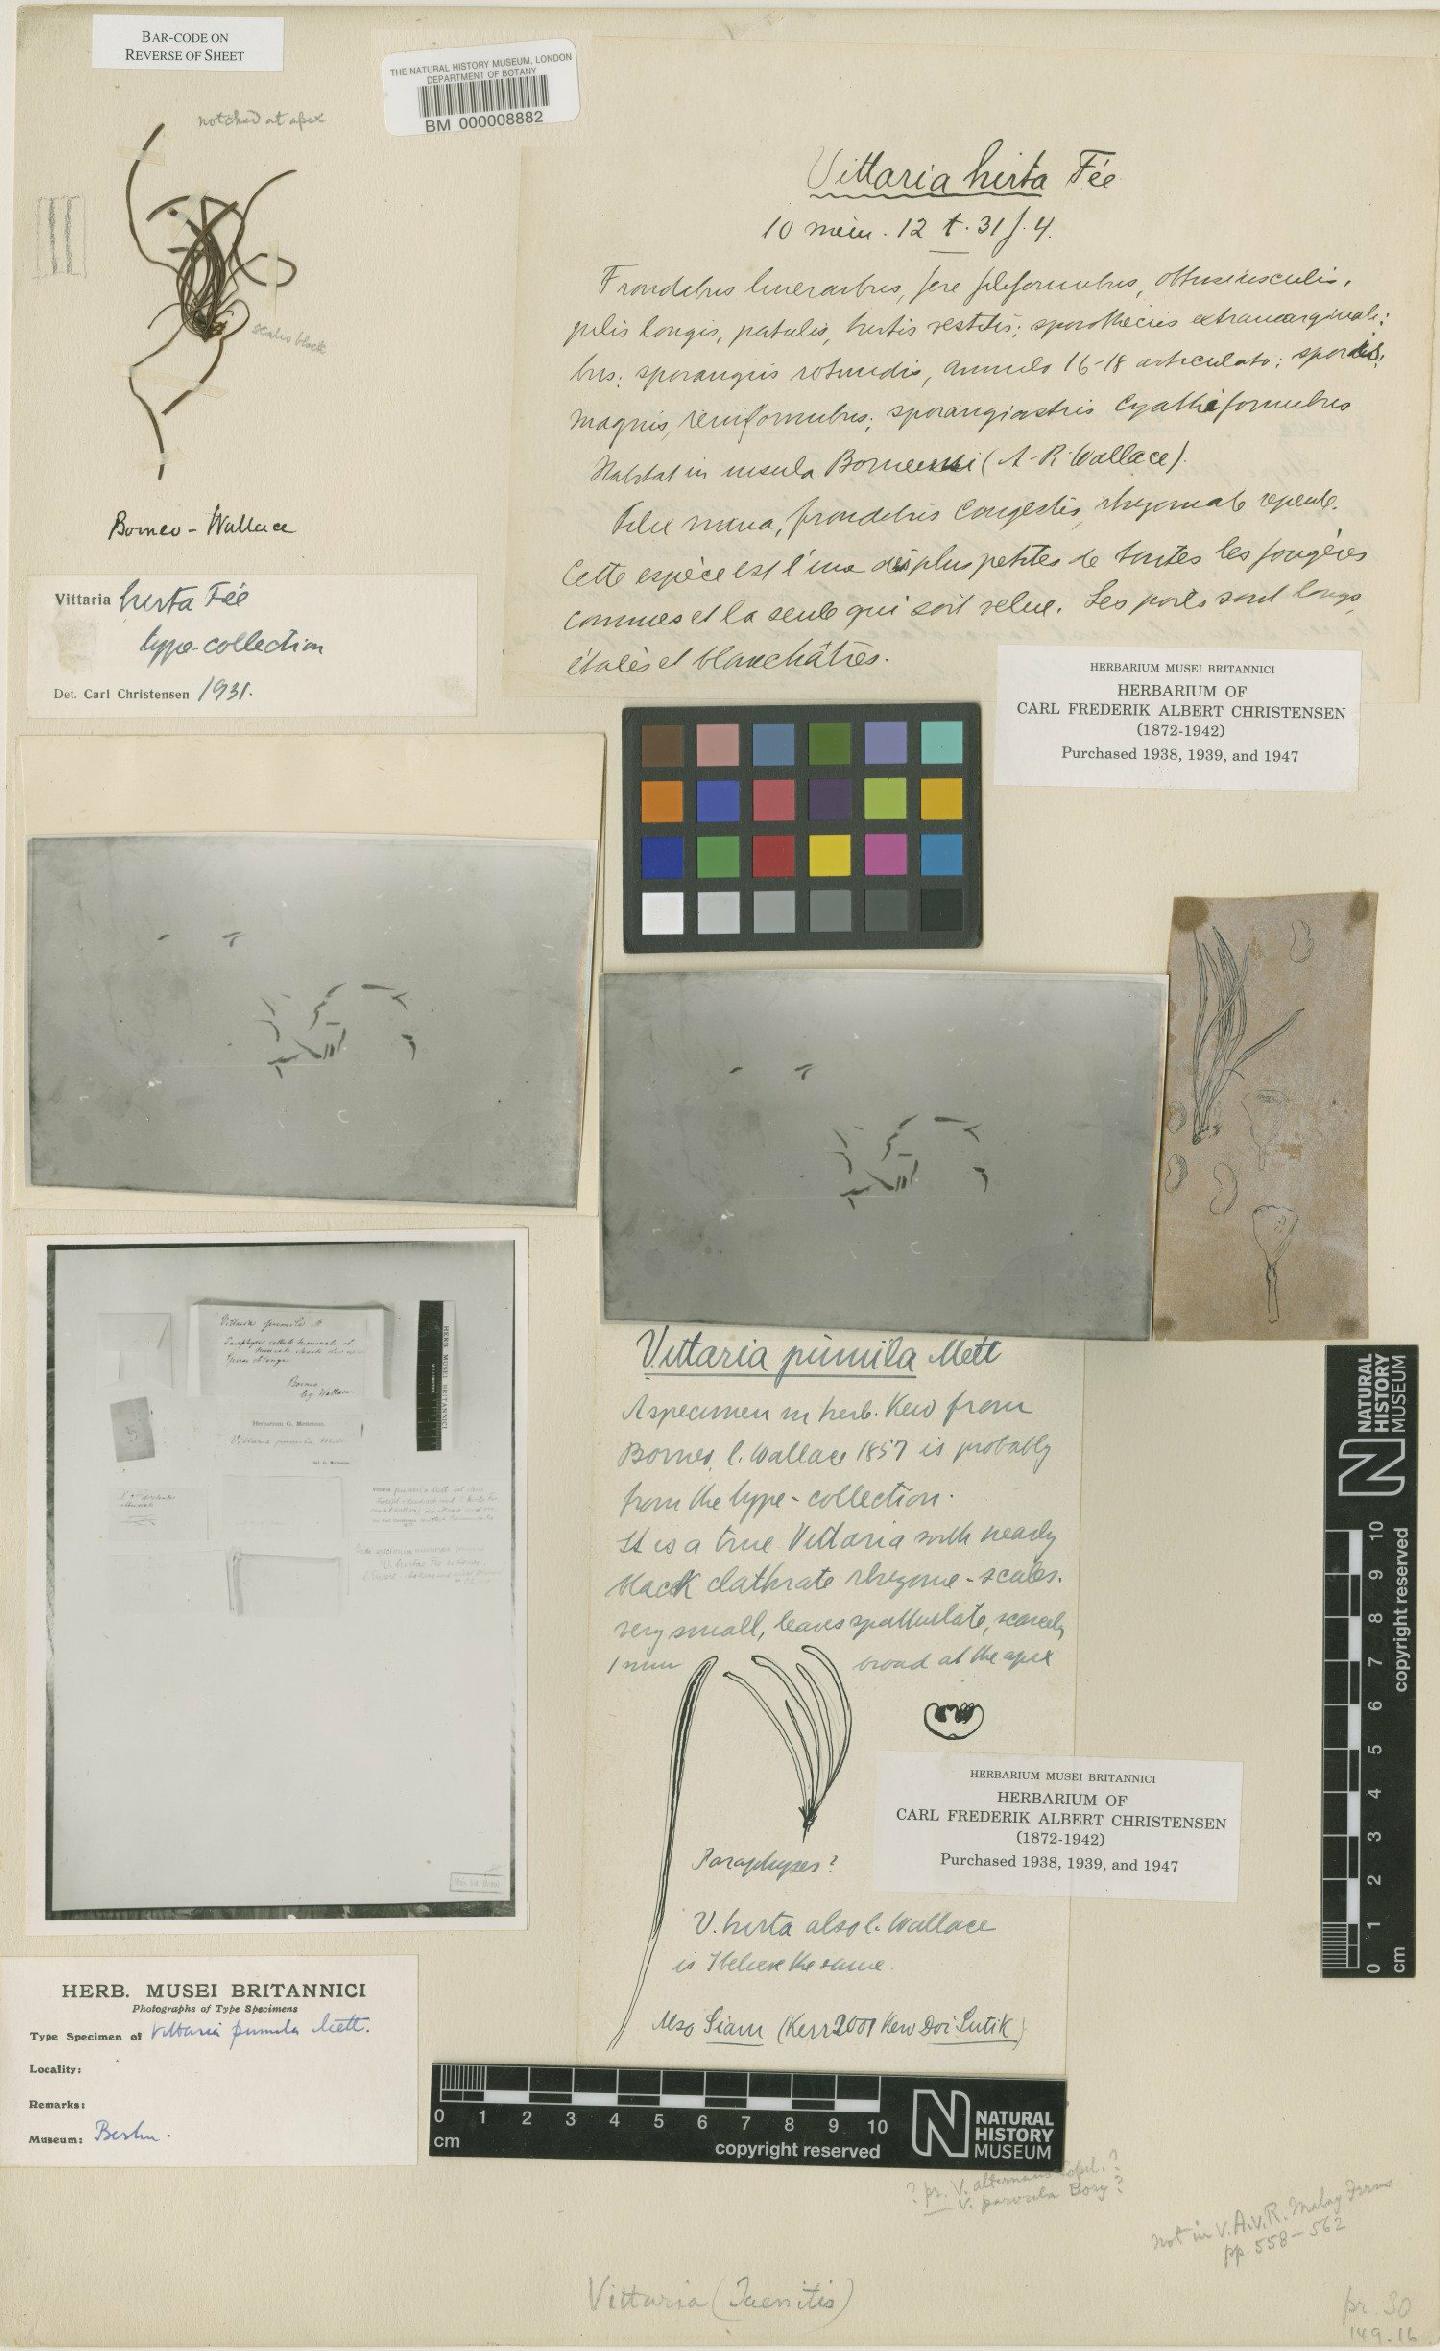 BAR-CODE ON
REVERSE OF SHEET
THE NATURAL HISTORY MUSEUM, LONDON
DEPARTMENT OF BOTANY
BM 000008882
notched at apex
scales black
Borneo - Wallace
Vittaria hirta Fée
type-collection
Det. Carl Christensen 1931.
Vittaria hirta Fée
10 mém. 12 t. 31 f. 4.
Frondibus linearibus, fere filiformibus, obtusiusculis,
pilis longis, patulis, hirtis vestitis; sporotheciis extramarginali-
bus; sporangiis rotundis, annulo 16-18 articulato; sporis
magnis, reniformibus; sporangiastris cyathiformibus
Habitat in insula (A. R. Wallace).
Filix nana, frondibus congestis, rhizomate repente.
Cette espèce est l'une des plus petites de toutes les fougères
connues et la seule qui soit velue. Les poils sont longs,
étalés et blanchâtres.
HERBARIUM MUSEI BRITANNICI
HERBARIUM OF
CARL FREDERIK ALBERT CHRISTENSEN
(1872-1942)
Purchased 1938, 1939, and 1947
Vittaria pumila
Borneo
leg Wallace
Herbarium G. Mettenius.
Vittaria pumila
HERB. MUSEI BRITANNICI
Vittaria pumila Mett
A specimen in herb. Kew from
Borneo, l. Wallace 1857 is probably
from the type-collection.
It is a true Vittaria with nearly
black clathrate rhizome-scales.
very small, leaves spathulate, scarcely
1 mm broad at the apex
Paraphyses?
V. hirta also l. Wallace
is I believe the same.
Also Siam (Kerr 2001 Kew Doi Sutik)
HERBARIUM MUSEI BRITANNICI
HERBARIUM OF
CARL FREDERIK ALBERT CHRISTENSEN
(1872-1942)
Purchased 1938, 1939, and 1947
HERB. MUSEI BRITANNICI
Photographs of Type Specimens
Type Specimen of Vittaria pumila Mett.
Locality:
Remarks:
Museum: Berlin.
0 1 2 3 4 5 6 7 8 9 10
cm
copyright reserved
NATURAL
HISTORY
MUSEUM
0 1 2 3 4 5 6 7 8 9 10
cm
copyright reserved
NATURAL
HISTORY
MUSEUM
? pr. V. alternans Copel. ?
V. parvula Bory ?
not in V.A.V.R. Malay Ferns
pp 558-562
Vittaria (Taenitis)
pr. 30
149.16